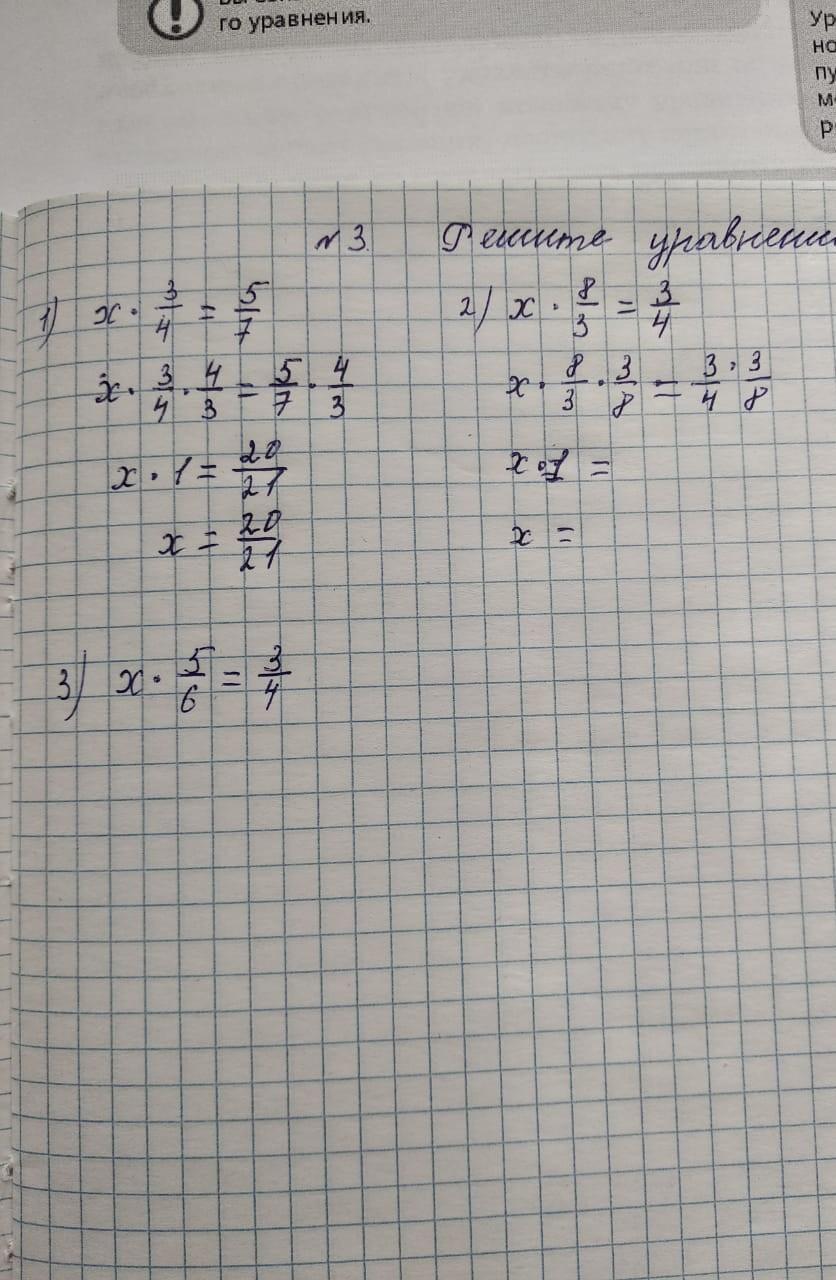 го уравнения.
№3. Решите уравнени
1) x · 3/4 = 5/7
x · 3/4 · 4/3 = 5/7 · 4/3
x · 1 = 20/21
x = 20/21
2) x · 8/3 = 3/4
x · 8/3 · 3/8 = 3/4 · 3/8
x · 1 =
x =
3) x · 5/6 = 3/4
Ур
но
пу
м
р